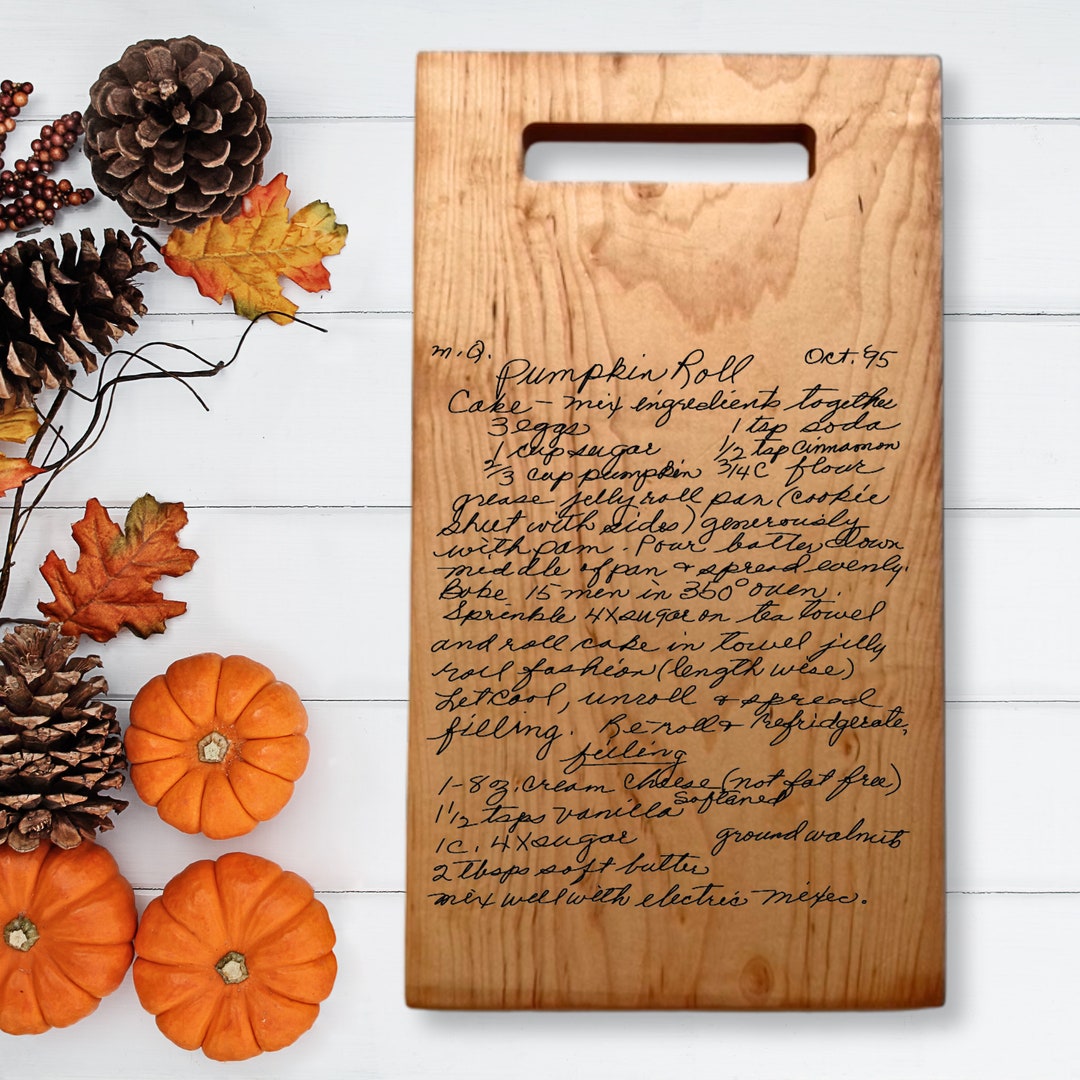 m.Q. Oct. '95
Pumpkin Roll
Cake - mix ingredients together
3 eggs 1 tsp soda
1 cup sugar 1/2 tsp cinnamon
2/3 cup pumpkin 3/4 C flour
grease jelly roll pan (cookie
sheet with sides) generously
with pam. Pour batter down
middle of pan & spread evenly.
Bake 15 min in 350° oven.
Sprinkle 4X sugar on tea towel
and roll cake in towel jelly
roll fashion (length wise)
Let cool, unroll & spread
filling. Re-roll & Refridgerate.
filling
1-8 oz. cream cheese (not fat free)
softened
1 1/2 tsps vanilla
1 C. 4X sugar ground walnuts
2 tbsps soft butter
mix well with electric mixer.